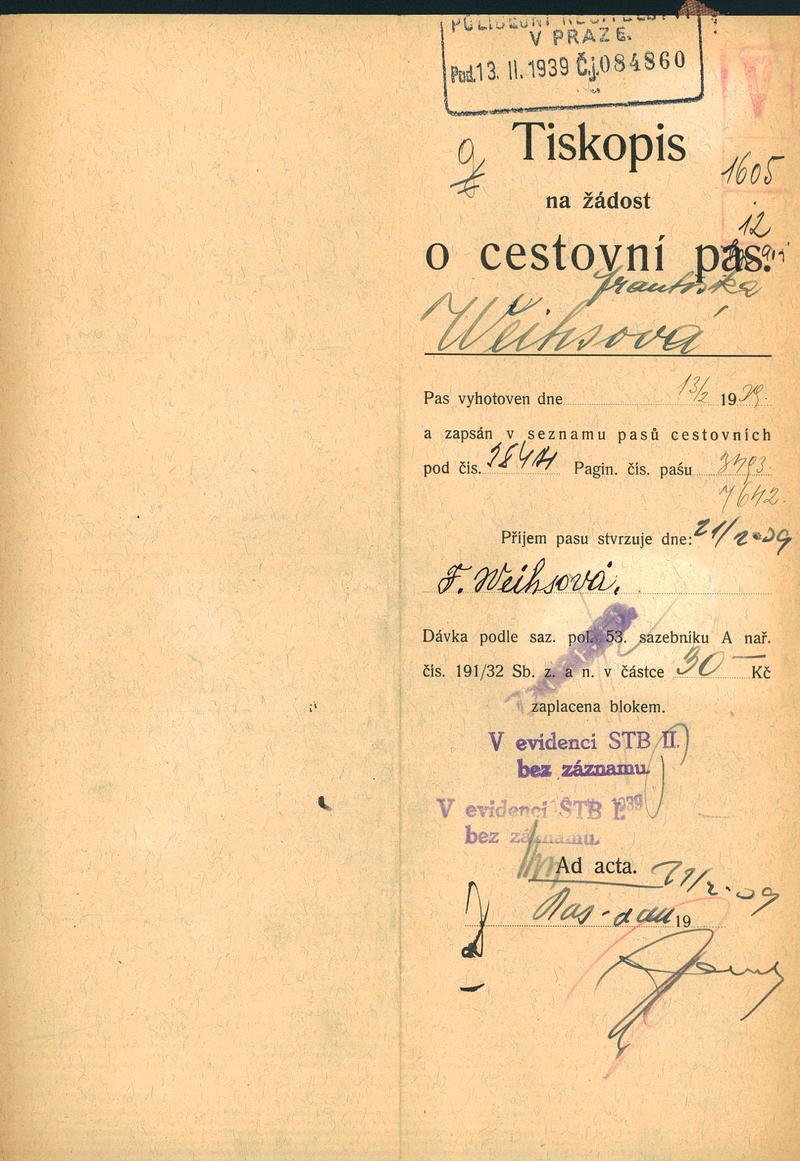 POLICEJNÍ ŘEDITELSTVÍ
V PRAZE.
Pod. 13. II. 1939 Č.j. 084860
Tiskopis
1605
na žádost
12
o cestovní pas.
Františka
Weihsová
Pas vyhotoven dne 13/2 1939.
a zapsán v seznamu pasů cestovních
pod čís. Pagin. čís. pasu 3493
7642.
Příjem pasu stvrzuje dne: 21/2-39
F. Weihsová.
Dávka podle saz. pol. 53. sazebníku A nař.
čís. 191/32 Sb. z. a n. v částce 30 — Kč
zaplacena blokem.
V evidenci STB II.
bez záznamu.
V evidenci STB I. 1939
bez záznamu.
Ad acta. 21/2-39
Pas - dán 19